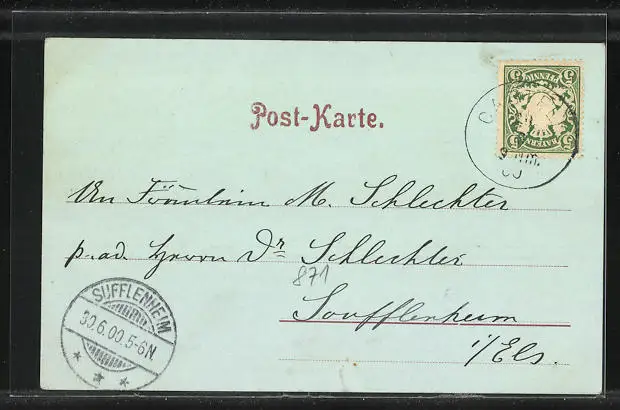 Post-Karte.
5 5
PFENNIG
BAYERN
5 5
An Fräulein M. Schlechter
p. ad. Herrn Dr. Schlechter
871
Soufflenheim
i/Els.
SUFFLENHEIM
30.6.00.5-6N